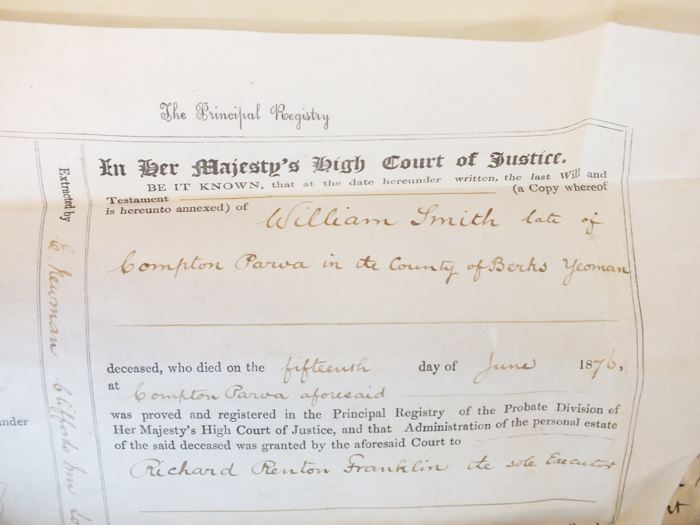 The Principal Registry
In Her Majesty's High Court of Justice.
BE IT KNOWN, that at the date hereunder written, the last Will and
Testament (a Copy whereof
is hereunto annexed) of William Smith late of
Compton Parva in the County of Berks Yeoman
deceased, who died on the fifteenth day of June 1876,
at Compton Parva aforesaid
was proved and registered in the Principal Registry of the Probate Division of
Her Majesty's High Court of Justice, and that Administration of the personal estate
of the said deceased was granted by the aforesaid Court to
Richard Renton Franklin the sole Executor
Extracted by E. Newman Cliffords Inn
under